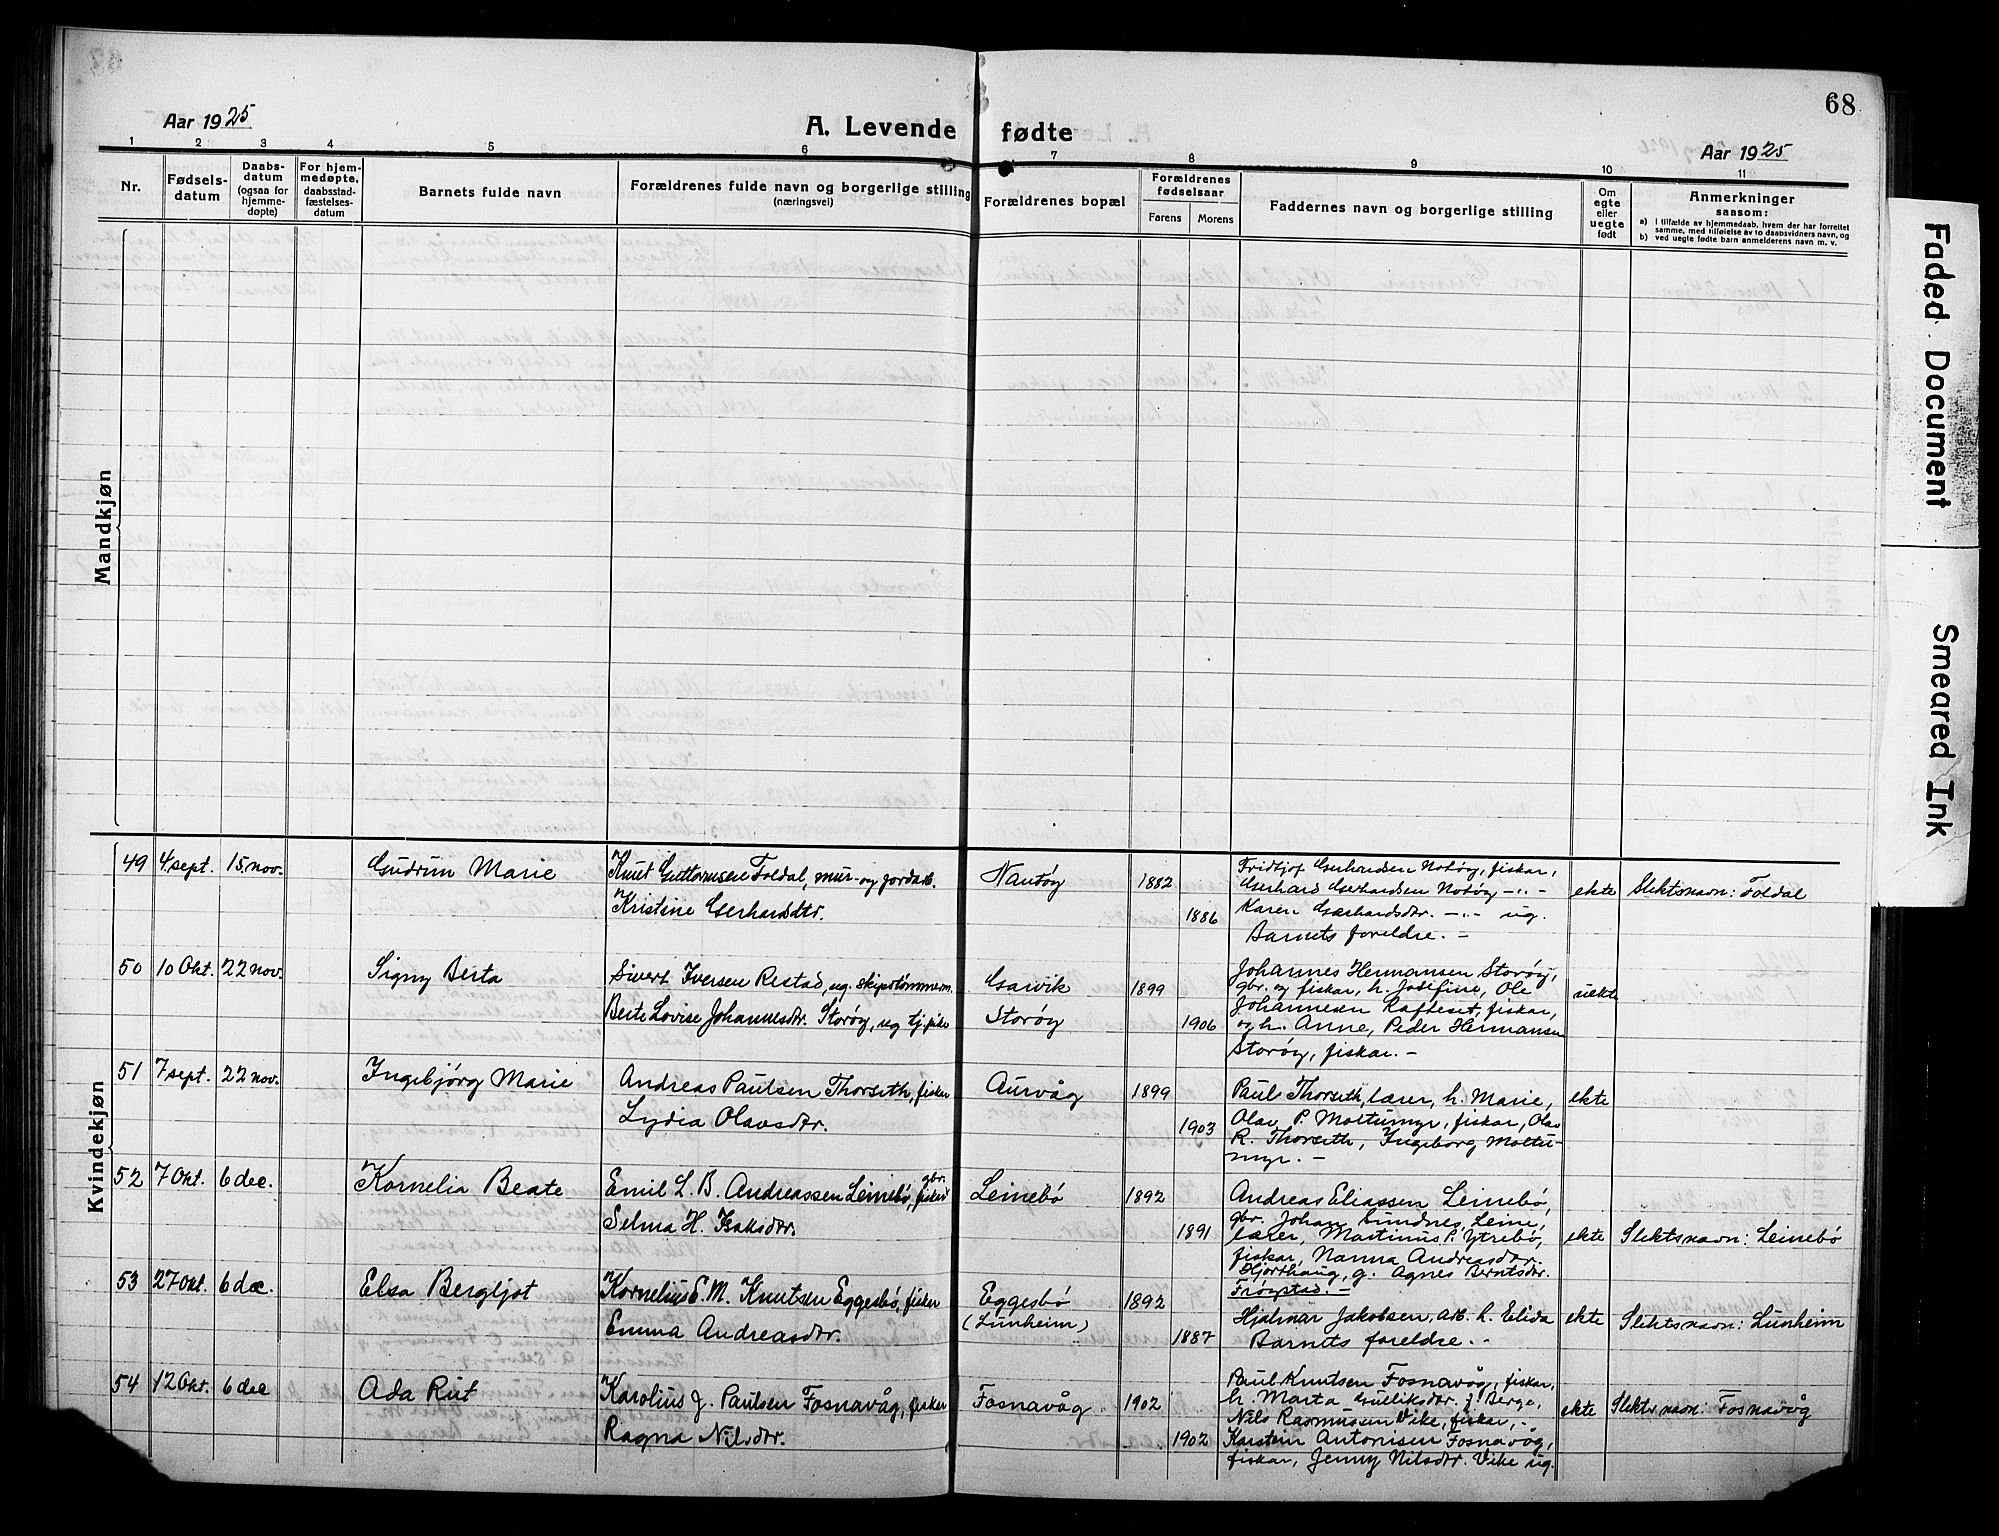 68
Aar 1925
A. Levende fødte
Aar 1925
1 2 3 4 5 6 7 8 9 10 11
Nr.
Fødsels-
datum
Daabs-
datum
(ogsaa for
hjemme-
døpte)
For hjem-
medøpte,
daabsstad-
fæstelses-
datum
Barnets fulde navn
Forældrenes fulde navn og borgerlige stilling
(næringsvei)
Forældrenes bopæl
Forældrenes
fødselsaar
Farens Morens
Faddernes navn og borgerlige stilling
Om
egte
eller
uegte
født
Anmerkninger
saasom:
a) i tilfælde av hjemmedaab, hvem der har forrettet
samme, med tilføielse av to daabsvidners navn, og
b) ved uegte fødte barn anmelderens navn m. v.
Mandkjøn
Kvindekjøn
49 4. sept. 15. nov. Gudrun Marie
Knut Guttormsen Foldal, mur- og jordarb.
Kristine Gerhardsdtr.
Nautøy
1882
1886
Fridtjof Gerhardsen Notøy, fiskar,
Gerhard Gerhardsen Notøy -"-
Karen Gerhardsdtr. -"- ug.
Barnets foreldre. -
ekte
Slektsnavn: Foldal
50 10 Okt. 22 nov. Signy Berta
Sivert Iversen Restad, ug. skipstømmerm.
Berte Lovise Johannesdtr. Storøy, ug tj. pike
Garvik
Storøy
1899
1906
Johannes Hermansen Storøy,
gbr. og fiskar, h. Josefine, Ole
Johannesen Rafteset, fiskar,
og h. Anne, Peder Hermansen
Storøy, fiskar. -
uekte
51 7 sept. 22 nov. Ingebjörg Marie
Andreas Paulsen Thorseth, fisker
Lydia Olavsdtr.
Aurvåg
1899
1903
Paul Thorseth, lærer, h. Marie,
Olav P. Moltumyr, fiskar, Olav
R. Thorseth, Ingeborg Moltu-
myr. -
ekte
52 7 Okt. 6 dec. Kornelia Beate
Emil L. B. Andreassen Leinebø, gbr. fisker
Selma H. Isaksdtr.
Leinebø
1892
1891
Andreas Eliassen Leinebø,
gbr. Johan Sundnes, Leine,
lærer, Martinus P. Ytrebø,
fiskar, Nanna Andreasdtr.
Hjorthaug, g. Agnes Berntsdtr.
Frøystad. -
ekte
Slektsnavn: Leinebø
53 27 Okt. 6 dec. Elsa Bergljot
Kornelius E. M. Knutsen Eggesbø, fisker
Emma Andreasdtr.
Eggesbø
(Lunheim)
1892
1887
Hjalmar Jakobsen, arb. h. Elida
Barnets foreldre. -
ekte
Slektsnavn: Lunheim
54 12 Okt. 6 dec Ada Rut
Karolius J. Paulsen Fosnavåg, fisker
Ragna Nilsdtr.
Fosnavåg
1902
1902
Paul Knutsen Fosnavåg, fiskar,
h. Marta Gulliksdtr. f. Berge,
Nils Rasmussen Vike, fiskar, -
Karstein Antonisen Fosnavåg,
fiskar, Jenny Nilsdtr. Vike ug.
ekte
Slektsnavn: Fosnavåg
Faded Document
Smeared Ink